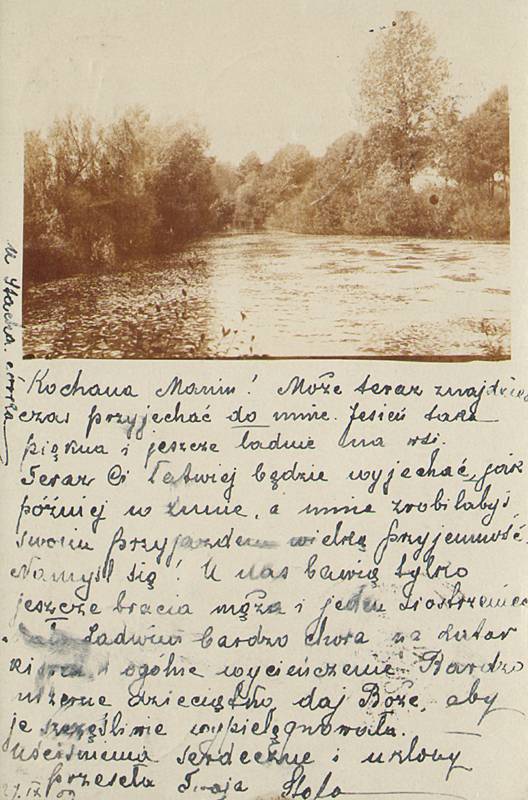 U Stacha. córka
Kochana Maniu! Może teraz znajdziesz
czas przyjechać do mnie. Jesień taka
piękna i jeszcze ładnie na wsi.
Teraz Ci łatwiej będzie wyjechać, jak
później w zimie, a mnie zrobiłabyś
swoim przyjazdem wielką przyjemność.
Namyśl się! U nas bawią tylko
jeszcze bracia męża i jeden siostrzeniec
Ładwiu bardzo chora na katar
kiszek i ogólne wycieńczenie. Bardzo
mizerne dzieciątko, daj Boże, aby
je szczęśliwie wypielęgnowała.
Uściśnienia serdeczne i ukłony
przesyła Twoja Stefa
27.IX 09